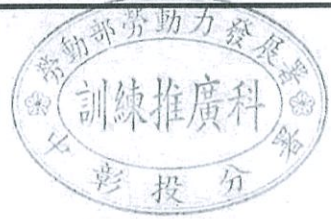 勞動部勞動力發展署
訓練推廣科
中彰投分署